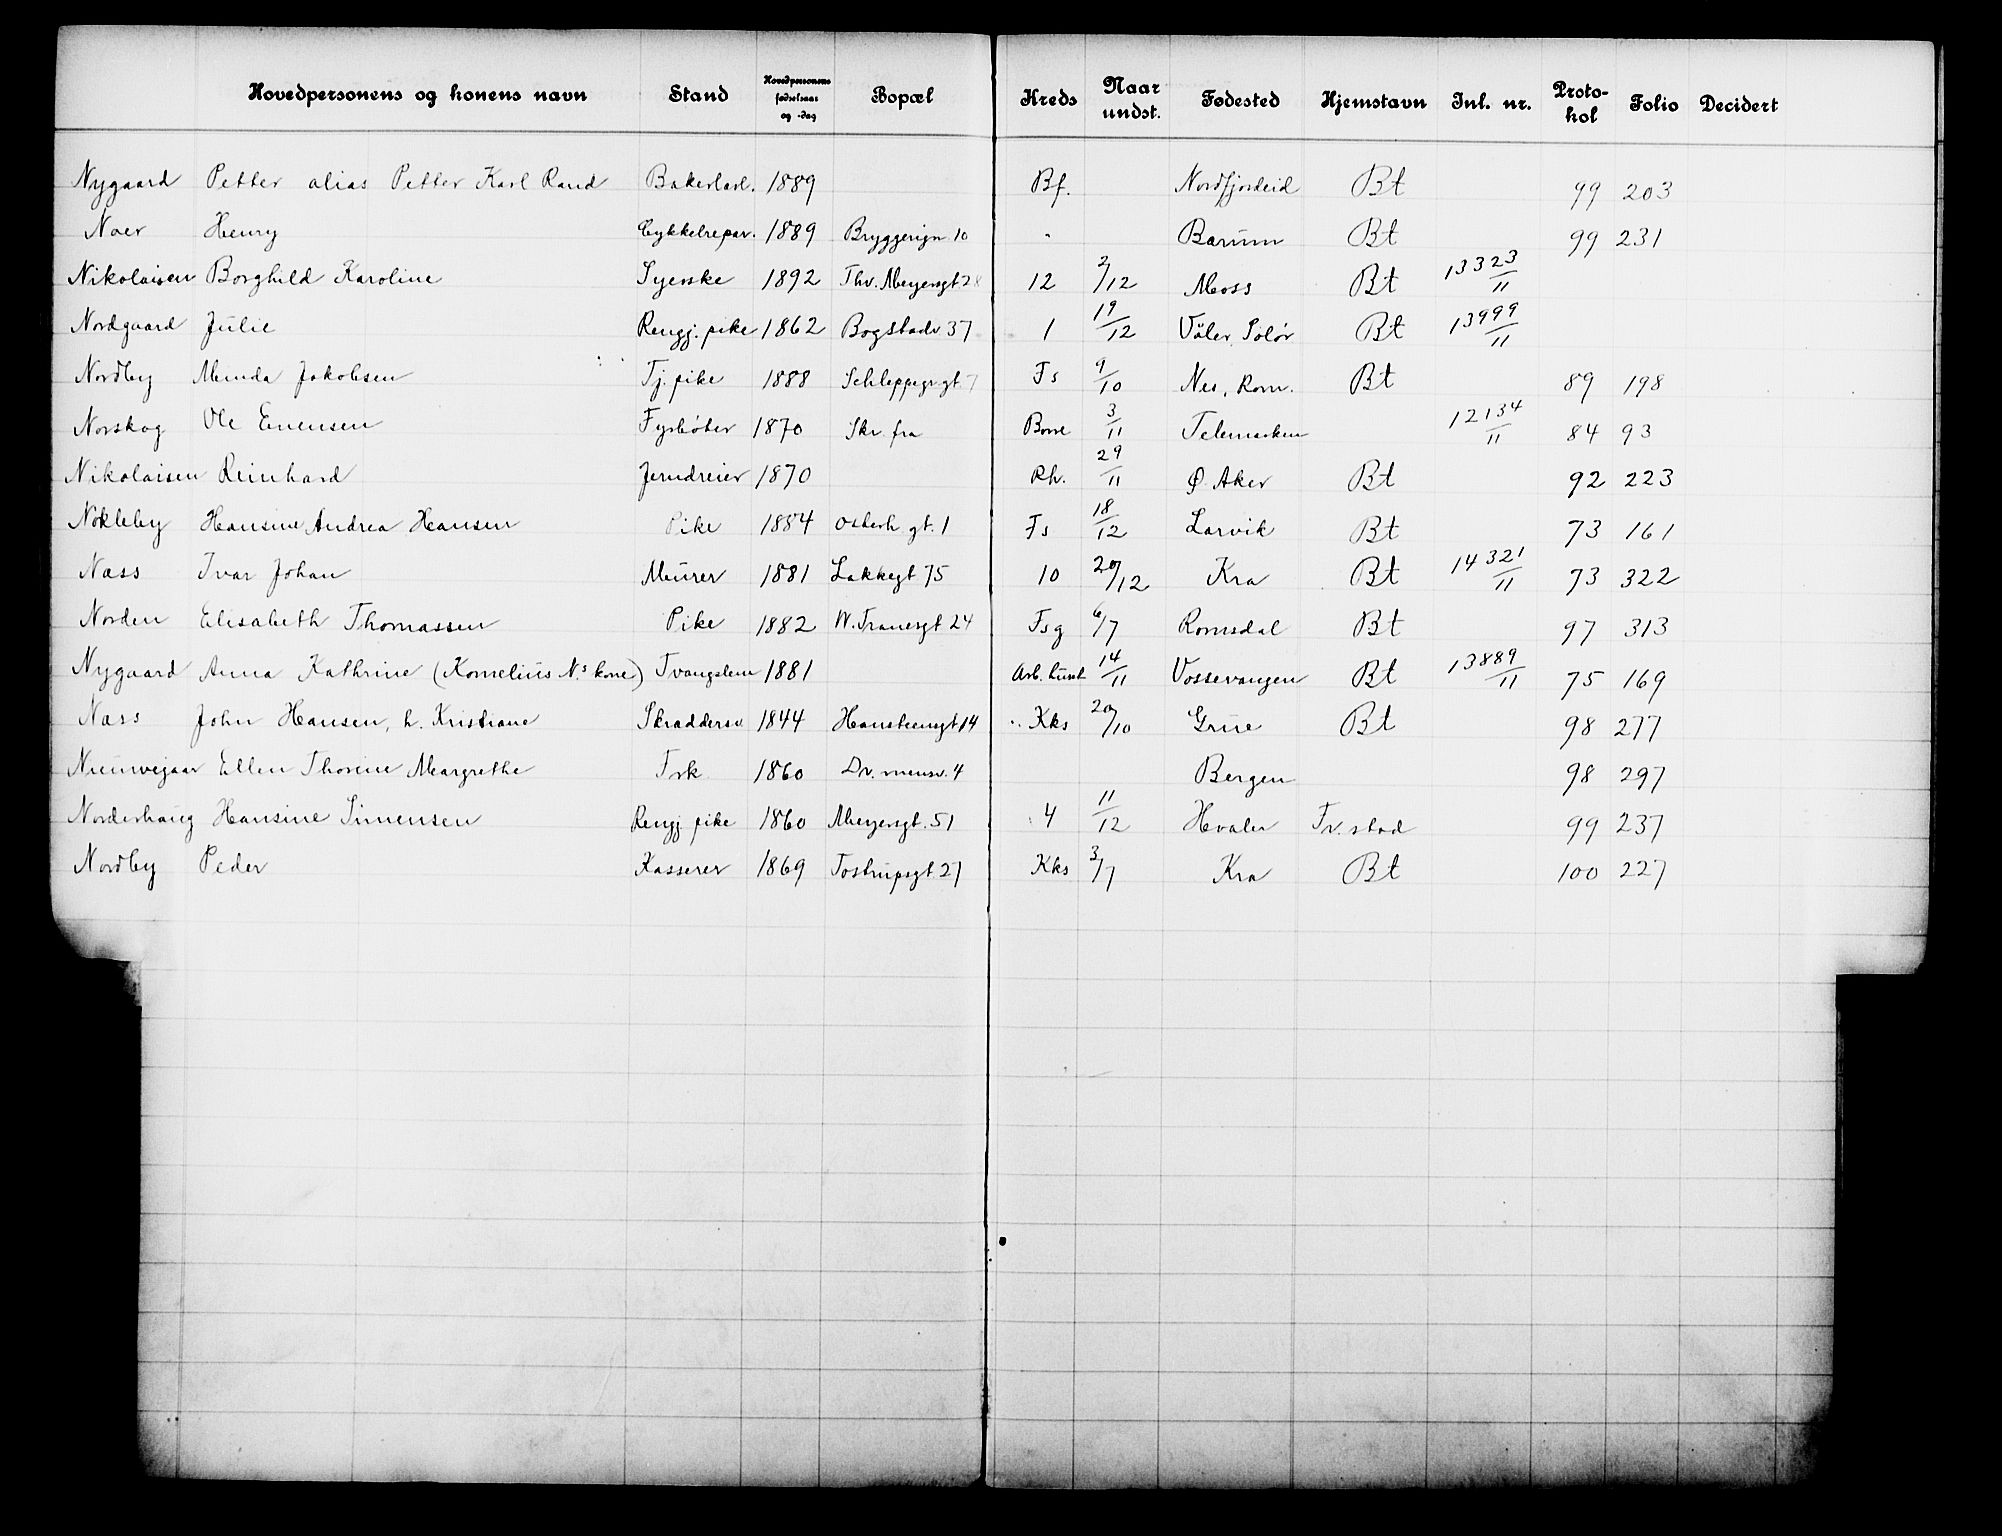 Hovedpersonens og konens navn Stand Hovedpersonens fødselsaar og -dag Bopæl Kreds Naar undst. Fødested Hjemstavn Inl. nr. Protokol Folio Decidert
Nygaard Petter alias Petter Karl Rand Bakerlærl. 1889 Bf. Nordfjordeid Bt 99 203
Noer Henry Cykkelrepar. 1889 Bryggerign 10 " Bærum Bt 99 231
Nikolaisen Borghild Karoline Syerske 1892 Thv. Meyersgt 28 12 2/12 Moss Bt 13323/11
Nordgaard Julie Rengj. pike 1862 Bogstadv 37 1 19/12 Våler, Solør Bt 13999/11
Nordby Minda Jakobsen Tj. pike 1888 Schleppegr.gt 7 Fs 9/10 Nes, Rom. Bt 89 198
Norskog Ole Evensen Fyrbøter 1870 Skr. fra Borre 3/11 Telemarken 12134/11 84 93
Nikolaisen Reinhard Jerndreier 1870 Rh. 29/11 Ø. Aker Bt 92 223
Nøkleby Hansine Andrea Hansen Pike 1884 Osterh gt. 1 Fs 18/12 Larvik Bt 73 161
Næss Ivar Johan Murer 1881 Lakkegt 75 10 20/12 Kra Bt 14321/11 73 322
Norden Elisabeth Thomassen Pike 1882 W. Tranesgt 24 Fsg 6/7 Romsdal Bt 97 313
Nygaard Anna Kathrine (Kornelius N.s kone) Tvangslem 1881 Arb. huset 14/11 Vossevangen Bt 13889/11 75 169
Næss John Hansen, h. Kristiane Skræddersv 1844 Hansteensgt 14 Kks 20/10 Grue Bt 98 277
Ellen Thorine Margrethe Frk 1860 Dr. mensv. 4 Bergen 98 297
Norderhaug Hansine Simensen Rengj. pike 1860 Meyersgt. 51 4 11/12 Hvaler Fr. stad 99 237
Nordby Peder Kasserer 1869 Tostrupsgt 27 Kks 3/7 Kra Bt 100 227